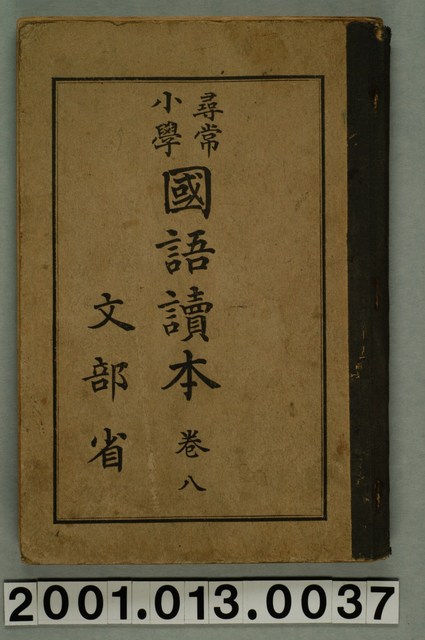 尋常
小學
國語讀本
卷八
文部省
2001.013.0037